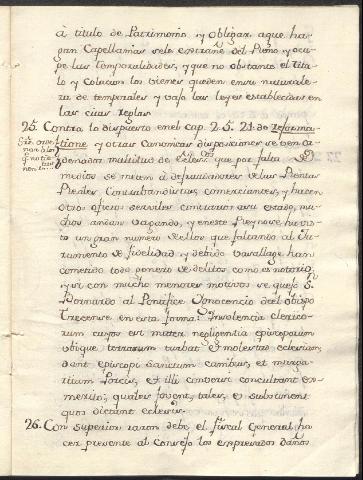 à titulo de Patrimonio y obliguen a que ha-
gan Capellanias se le extrañe del Reyno y ocu-
pe las temporalidades, y que no obstante el titu-
lo y colacion los vienes queden en su naturale-
za de temporales y vajo las leyes establecidas en
las citas reglas
25. Contra lo dispuesto en el cap. 2. S. 21. de reforma-
tione y otras Canonicas disposiciones se ven or-
denados multitud de Eclesi. que por falta de
medios se meten à defraudadores de las Rentas
Reales Contrabandistas, comerciantes, y hacen
otros oficios serviles contrarios a su estado, mu-
chos andan vagando, y en este Reyno se ha vis-
to un gran numero de ellos que faltando al Ju-
ramento de fidelidad y debido vasallage han
cometido todo genero de delitos como es notorio,
y si con mucho menores motivos se quejó Sn.
Bernardo al Pontifice Ynocencio del obispo
Trecense en esta forma: Ynsolencia clerico-
rum cujus est mater negligentia episcoporum
ubique terrarum turbat et molestat eclesiam;
dant episcopi Sanctum canibus, et marga-
ritas Porcis, et illi conversi conculcant eos
merito; quales fovent, tales, et sustinent
quos dictant eclesiis.
26. Con superior razon debe el fiscal General ha
cer presente al Consejo los expresados daños